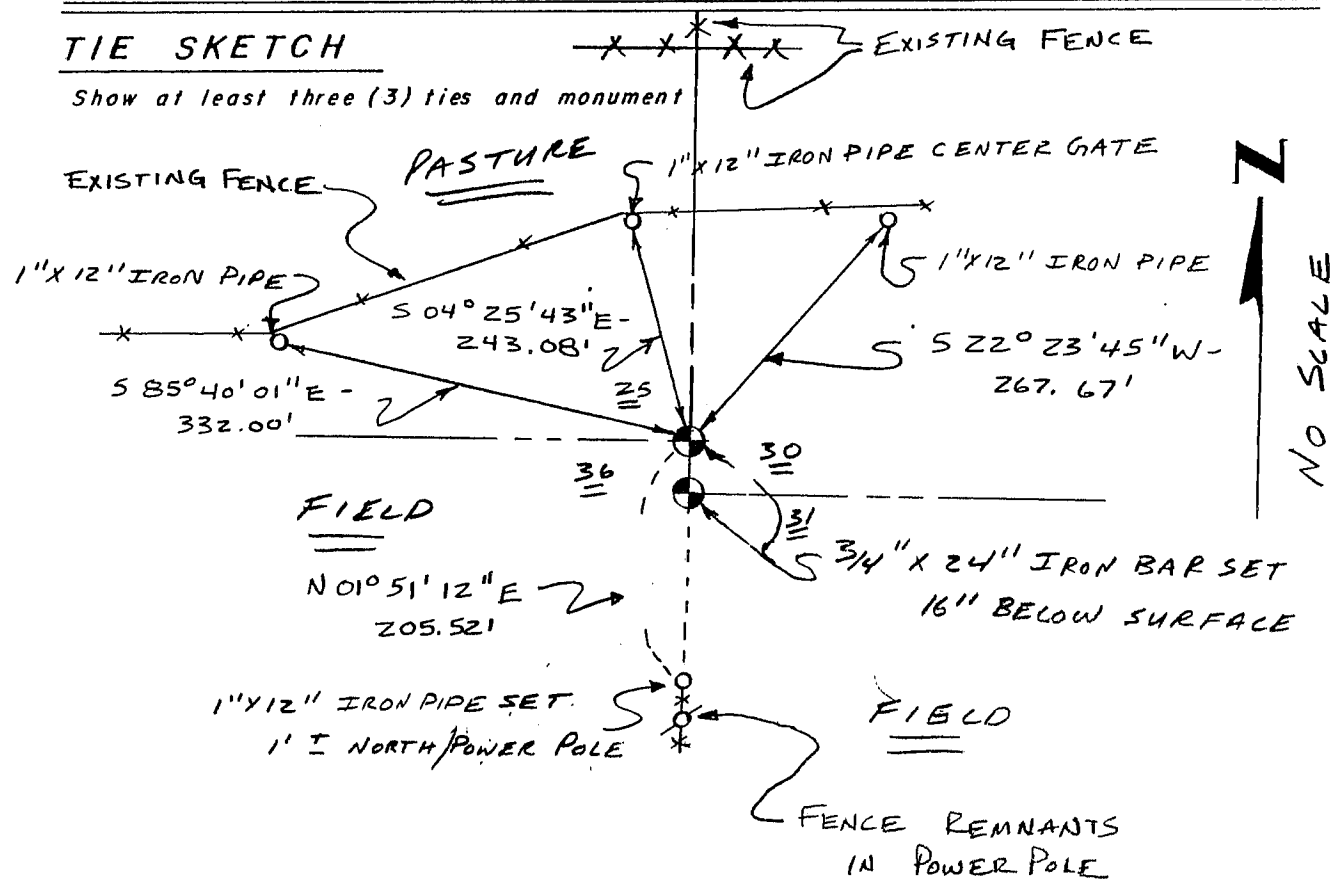 TIE SKETCH
Show at least three (3) ties and monument
EXISTING FENCE
PASTURE
1"X12" IRON PIPE CENTER GATE
EXISTING FENCE
N
1"X12" IRON PIPE
1"X12" IRON PIPE
S 04° 25' 43" E -
243.08'
S 22° 23' 45" W -
267.67'
NO SCALE
S 85° 40' 01" E -
332.00'
25
30
36
31
FIELD
3/4" X 24" IRON BAR SET
16" BELOW SURFACE
N 01° 51' 12" E
205.52'
1"X12" IRON PIPE SET
1' ± NORTH/POWER POLE
FIELD
FENCE REMNANTS
IN POWER POLE